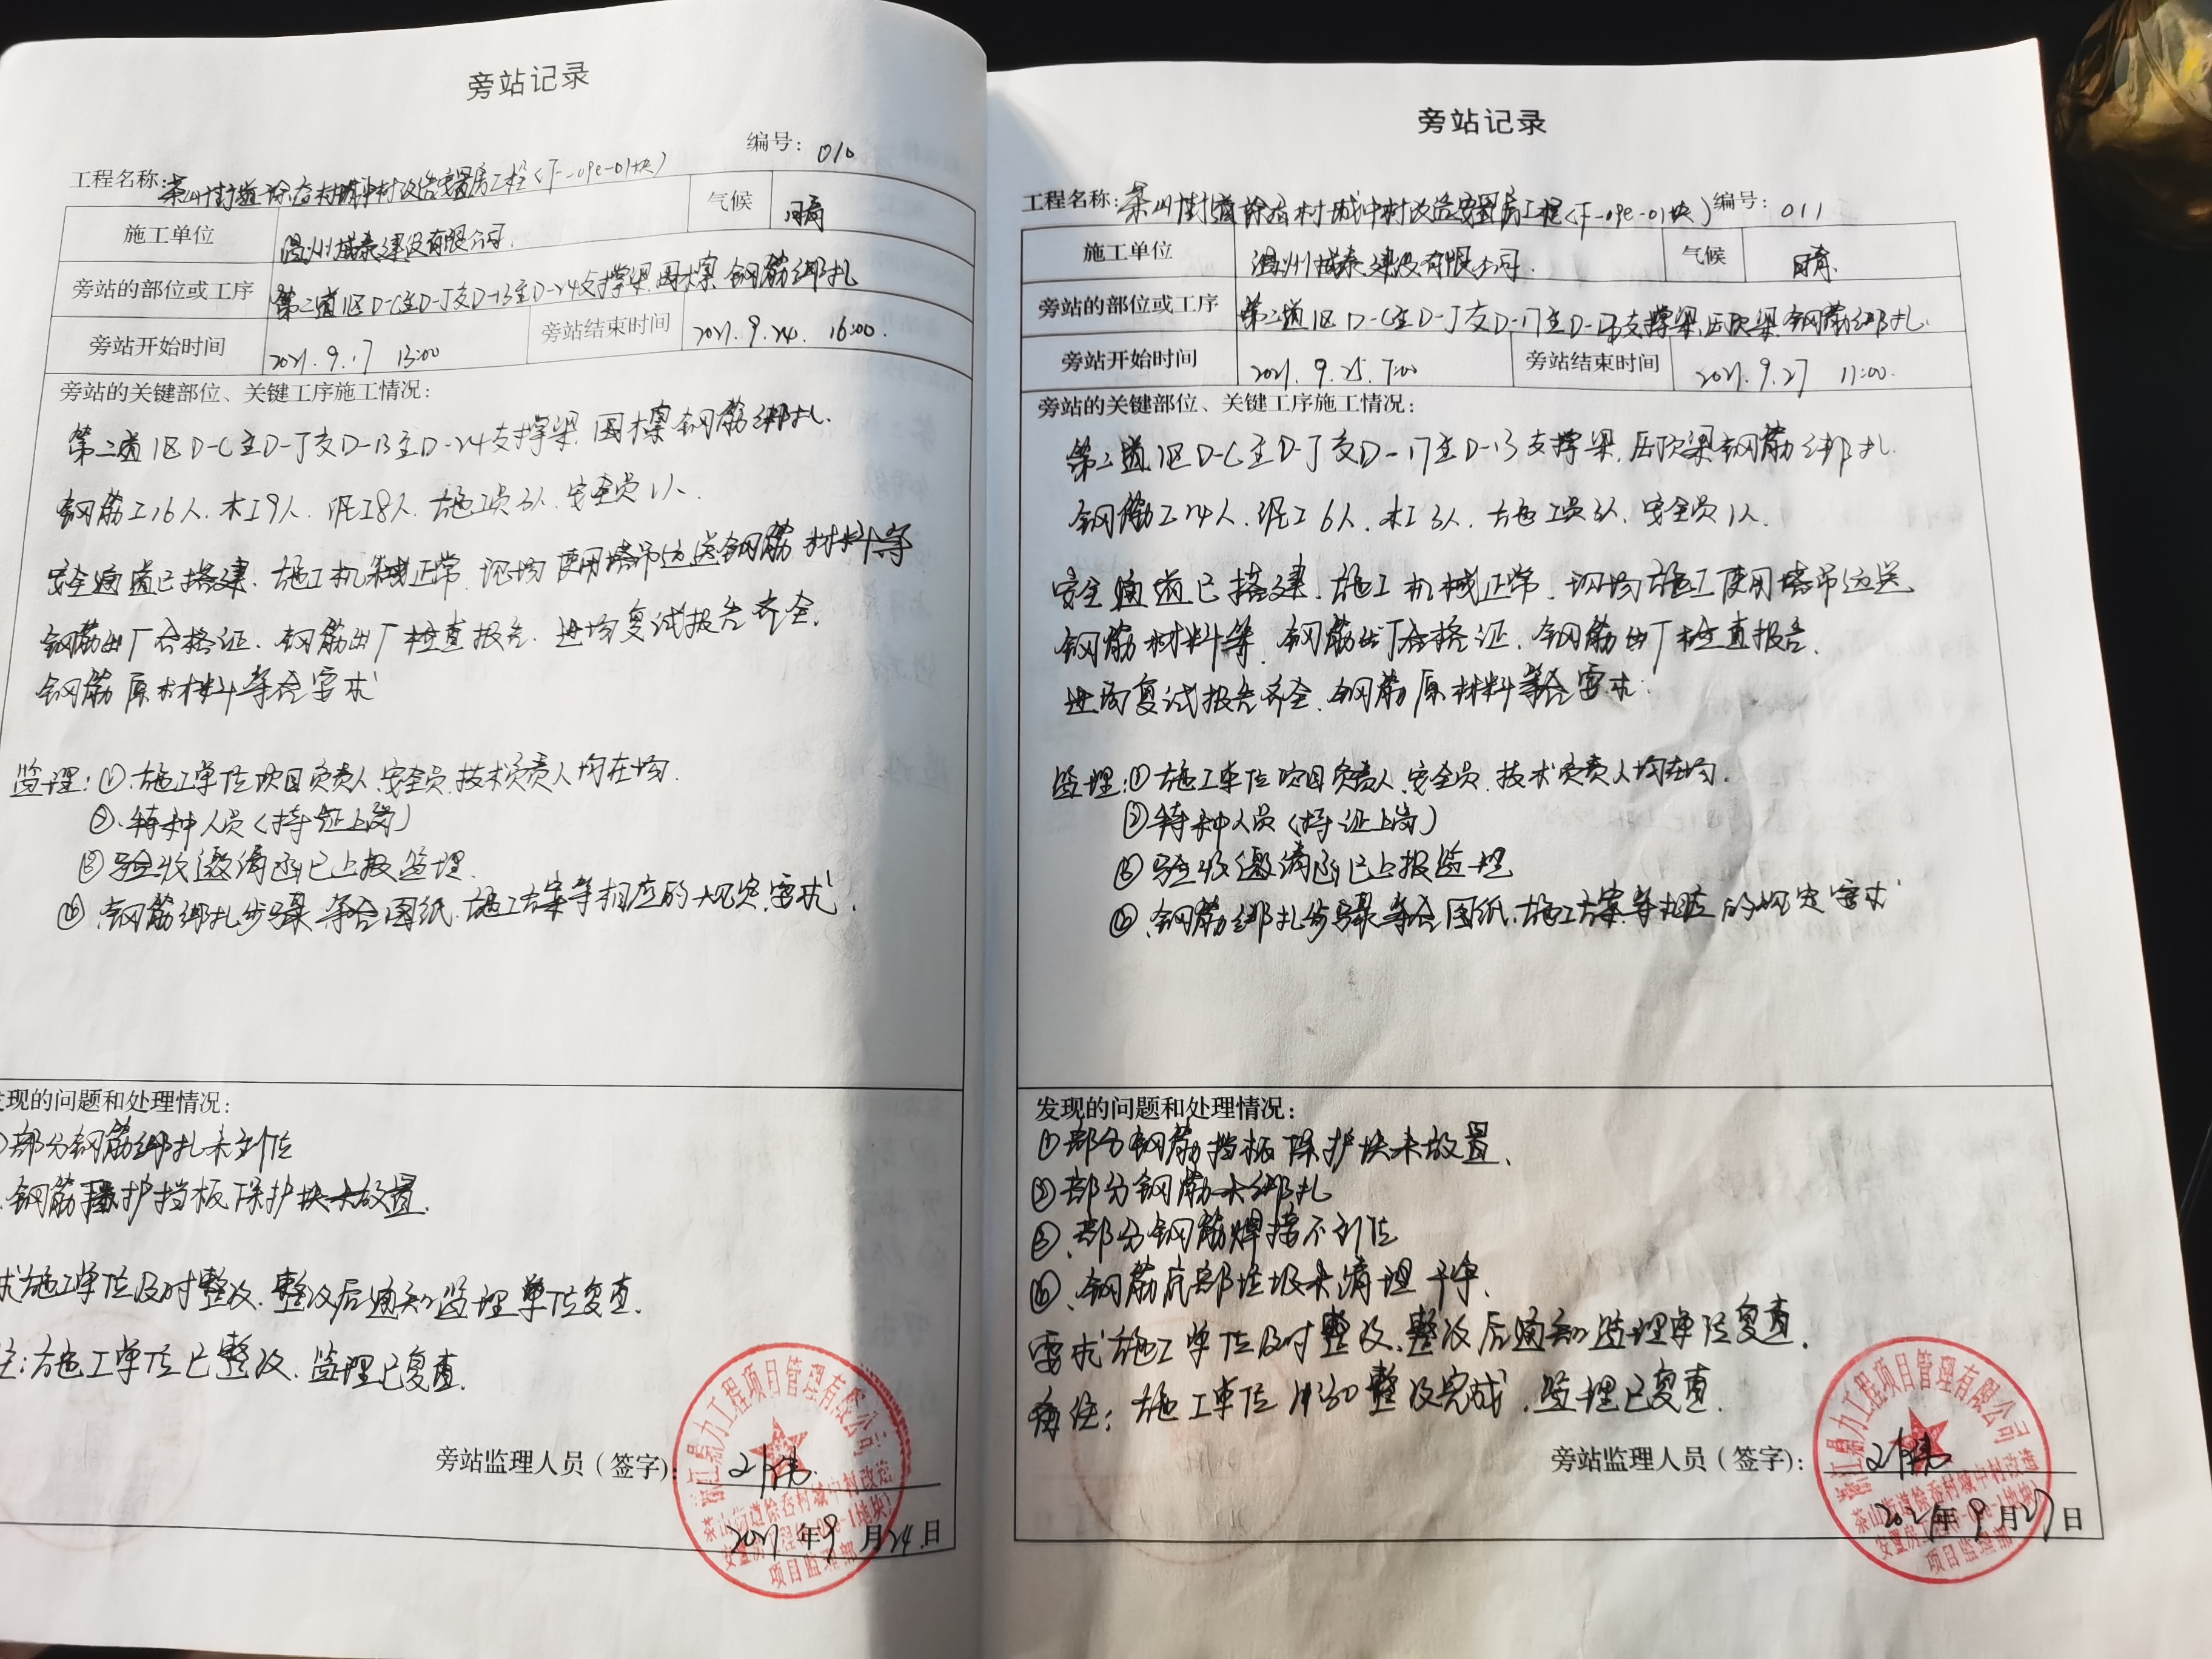 旁站记录
编号：010
工程名称：茶山街道徐岙村城中村改造安置房工程（F-09e-01块）
施工单位 温州城泰建设有限公司. 气候 晴
旁站的部位或工序 第二道1区D-C至D-J交D-13至D-24支撑梁.围檩.钢筋绑扎
旁站开始时间 2021.9.17 13:00 旁站结束时间 2021.9.24. 16:00.
旁站的关键部位、关键工序施工情况：
第二道1区D-C至D-J交D-13至D-24支撑梁.围檩钢筋绑扎.
钢筋工16人.木工9人.泥工8人.施工员3人.安全员1人.
安全通道已搭建.施工机械正常.现场使用塔吊运送钢筋材料等
钢筋出厂合格证.钢筋出厂检查报告.进场复试报告齐全.
钢筋原材料符合要求
监理：①.施工单位项目负责人.安全员.技术负责人均在场.
②.特种人员（持证上岗）
③验收邀请函已上报监理.
④.钢筋绑扎步骤符合图纸.施工方案等相应的规定要求.
发现的问题和处理情况：
部分钢筋绑扎未到位
钢筋 护挡板保护块未放置.
求施工单位及时整改.整改后通知监理单位复查.
注：施工单位已整改.监理已复查.
旁站监理人员（签字）：
2021年9月24日
浙江鼎力工程项目管理有限公司
茶山街道徐岙村城中村改造
安置房工程(F-09e-1地块)
项目监理部
旁站记录
工程名称：茶山街道徐岙村城中村改造安置房工程（F-09e-01块）编号：011
施工单位 温州城泰建设有限公司. 气候 晴.
旁站的部位或工序 第二道1区D-C至D-J交D-17至D-13支撑梁.压顶梁.钢筋绑扎.
旁站开始时间 2021.9.25.7:00 旁站结束时间 2021.9.27 11:00.
旁站的关键部位、关键工序施工情况：
第二道1区D-C至D-J交D-17至D-13支撑梁.压顶梁钢筋绑扎.
钢筋工24人.泥工6人.木工3人.施工员3人.安全员1人.
安全通道已搭建.施工机械正常.现场施工使用塔吊运送
钢筋材料等.钢筋出厂合格证.钢筋出厂检查报告.
进场复试报告齐全.钢筋原材料符合要求.
监理：①施工单位项目负责人.安全员.技术负责人均在场.
②特种人员（持证上岗）
③验收邀请函已上报监理
④.钢筋绑扎步骤符合图纸.施工方案等相应的规定要求
发现的问题和处理情况：
①部分钢筋挡板保护块未放置.
②部分钢筋未绑扎
③.部分钢筋焊接不到位
④.钢筋底部垃圾未清理干净.
要求施工单位及时整改.整改后通知监理单位复查.
备注：施工单位 整改完成.监理已复查.
旁站监理人员（签字）：
2021年9月27日
浙江鼎力工程项目管理有限公司
茶山街道徐岙村城中村改造
项目监理部